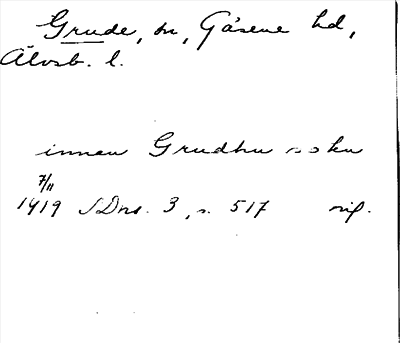 Grude, sn, Gäsene hd,
Älvsb. l.
innan Grudhu soku
7/11
1419 SDns. 3, s. 517 orig.